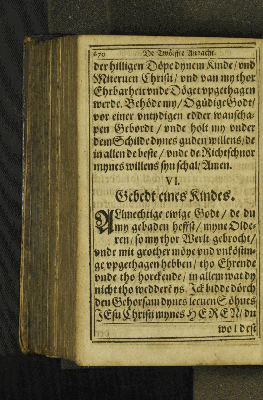 De Twölffte Andacht.
der hilligen Döpe dynem Kinde / vnd
Miteruen Christi / vnd van my thor
Ehrbarheit vnde Döget vpgethagen
werde. Behöde my / O güdige Godt /
vor einer vntydigen edder wanscha-
pen Gebordt / vnde holt my vnder
dem Schilde dynes guden willens / de
in allen de beste / vnde de Richtschnor
mynes willens syn schal / Amen.
VI.
Gebedt eines Kindes.
ALmechtige ewige Godt / de du
my gebaden heffst / myne Olde-
ren / so my thor Werlt gebrocht /
vnde mit grother möye vnd vnköstin-
ge vpgethagen hebben / tho Ehrende
vnde tho horckende / in allem wat dy
nicht tho wedderē ys. Ick bidde dörch
den Gehorsam dynes leeuen Söhnes
JEsu Christi mynes HEREN / du